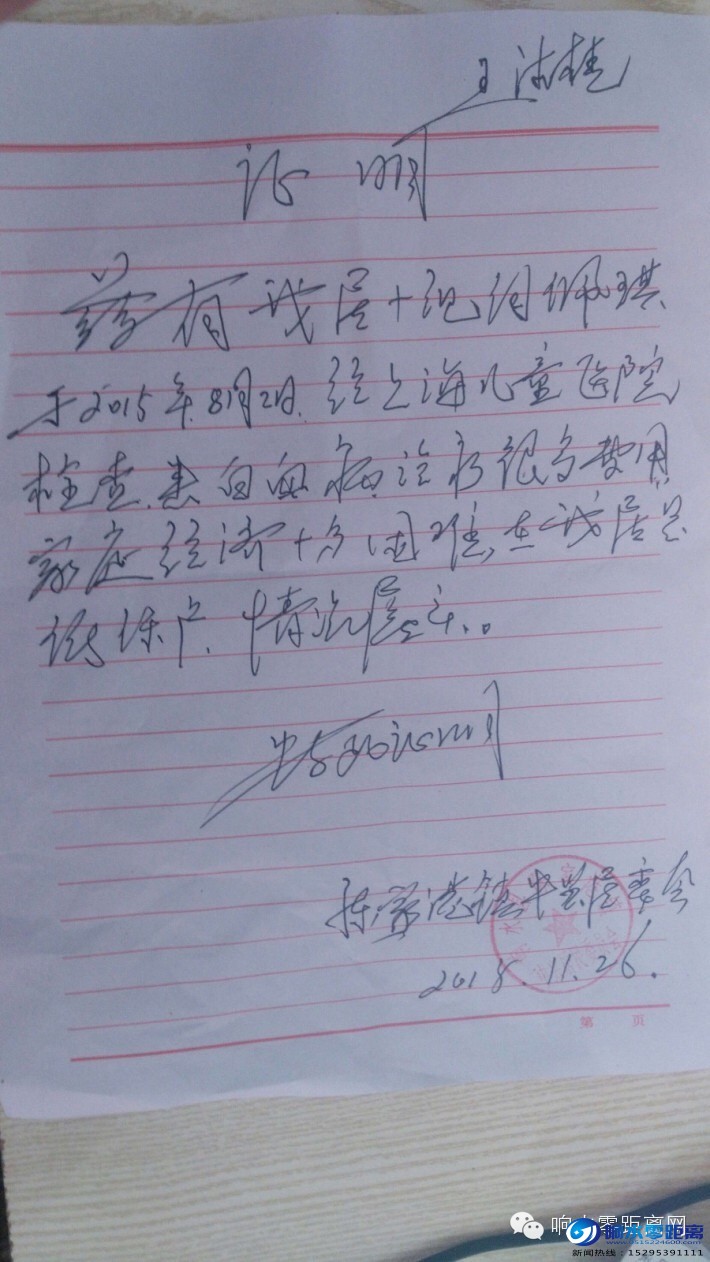 王
证明
兹有我居十组何佩琪
于2015年.8月2日.经上海儿童医院
检查.患白血病.治疗很多费用
家庭经济十分困难.在我居是
低保户.情况属实..
特此证明
陈家港镇 居委会
2015.11.26.
第 页
响水零距离网
响水零距离
www.15152246000.com
新闻热线:15295391111